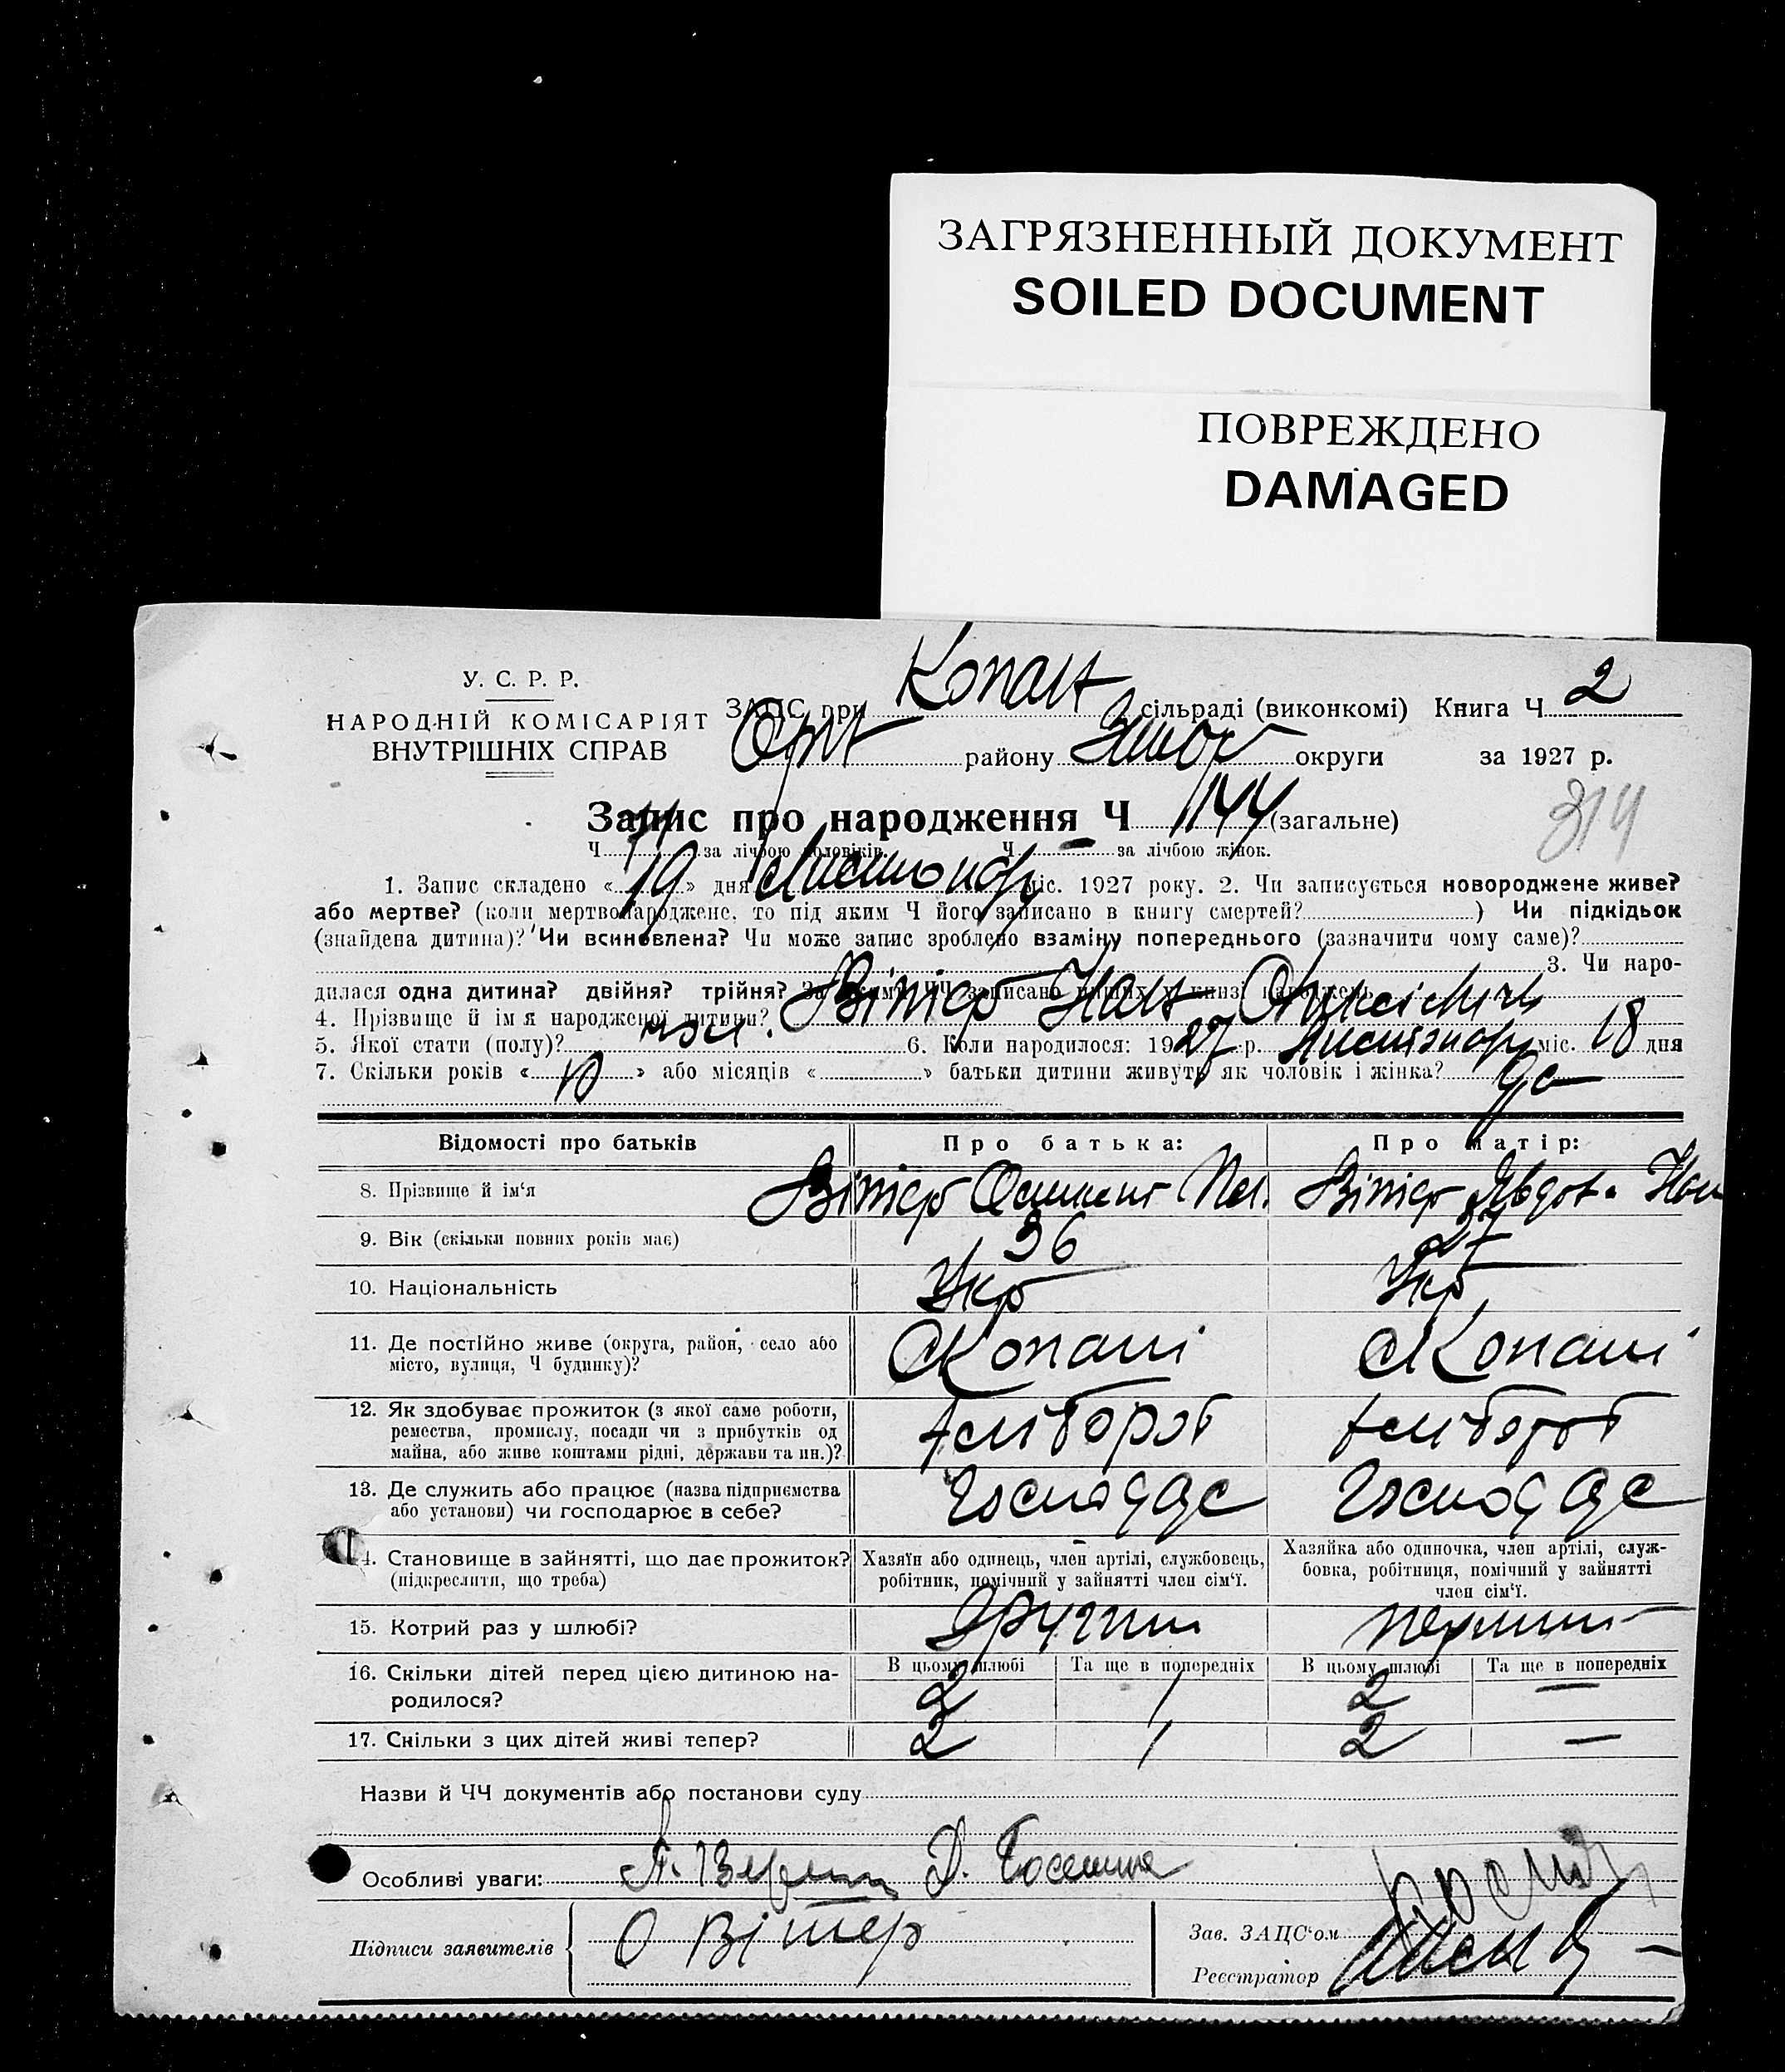 ЗАГРЯЗНЕННЫЙ ДОКУМЕНТ
SOILED DOCUMENT
ПОВРЕЖДЕНО
DAMAGED
У. С. Р. Р.
НАРОДНІЙ КОМІСАРІЯТ
ВНУТРІШНІХ СПРАВ
ЗАГС при Копан сільраді (виконкомі) Книга Ч 2
району округи за 1927 р.
Запис про народження Ч 144 (загальне)
314
Ч за лічбою чоловіків. Ч — за лічбою жінок.
1. Запис складено «19» дня Листопаду міс. 1927 року. 2. Чи записується новороджене живе?
або мертве? (коли мертвонароджене, то під яким Ч його записано в книгу смертей? ) Чи підкідьок
(знайдена дитина)? Чи всиновлена? Чи може запис зроблено взаміну попереднього (зазначити чому саме)?
3. Чи наро-
дилася одна дитина? двійня? трійня? За якими ЧЧ записано инших у книзі народжень
4. Прізвище й ім'я народженої дитини? Вітер Іван
5. Якої стати (полу)? чол. 6. Коли народилося: 1927 р. Листопаду міс. 18 дня
7. Скільки років «10» або місяців « » батьки дитини живуть як чоловік і жінка?
Відомості про батьків Про батька: Про матір:
8. Прізвище й ім'я Вітер Вітер Явдох.
9. Вік (скільки повних років має) 36 27
10. Національність Укр Укр
11. Де постійно живе (округа, район, село або
місто, вулиця, Ч будинку)? с Копані с Копані
12. Як здобуває прожиток (з якої саме роботи,
ремества, промислу, посади чи з прибутків од
майна, або живе коштами рідні, держави та ин.)?
13. Де служить або працює (назва підприємства
або установи) чи господарює в себе?
14. Становище в зайнятті, що дає прожиток?
(підкреслити, що треба)
Хазяїн або одинець, член артілі, службовець,
робітник, помічний у зайнятті член сім'ї.
Хазяйка або одиночка, член артілі, служ-
бовка, робітниця, помічний у зайнятті
член сім'ї.
15. Котрий раз у шлюбі? Другий перший
16. Скільки дітей перед цією дитиною на-
родилося?
В цьому шлюбі Та ще в попередніх В цьому шлюбі Та ще в попередніх
2 1 2 —
17. Скільки з цих дітей живі тепер? 2 1 2 —
Назви й ЧЧ документів або постанови суду
Особливі уваги:
Підписи заявителів О Вітер
Зав. ЗАЦС'ом
Реєстратор